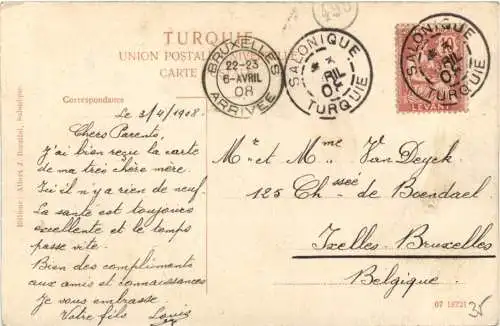 TURQUIE
UNION POSTALE UNIVERSELLE
CARTE
Correspondance
Le 3/4/1908
Chers Parents,
J'ai bien reçu la carte
de ma très chère mère.
Ici il n'y a rien de neuf.
La santé est toujours
excellente et le temps
passe vite.
Bien des compliments
aux amis et connaissances
Je vous embrasse
Votre fils Louis
BRUXELLES
22-23
6-AVRIL
08
ARRIVÉE
SALONIQUE
TURQUIE
SALONIQUE
TURQUIE
LEVANT
Mr et Mme Van Deyck
125 Chssée de Boendael
Ixelles-Bruxelles
Belgique
07 18721
Editeur: Albert J. Barzilai, Salonique.